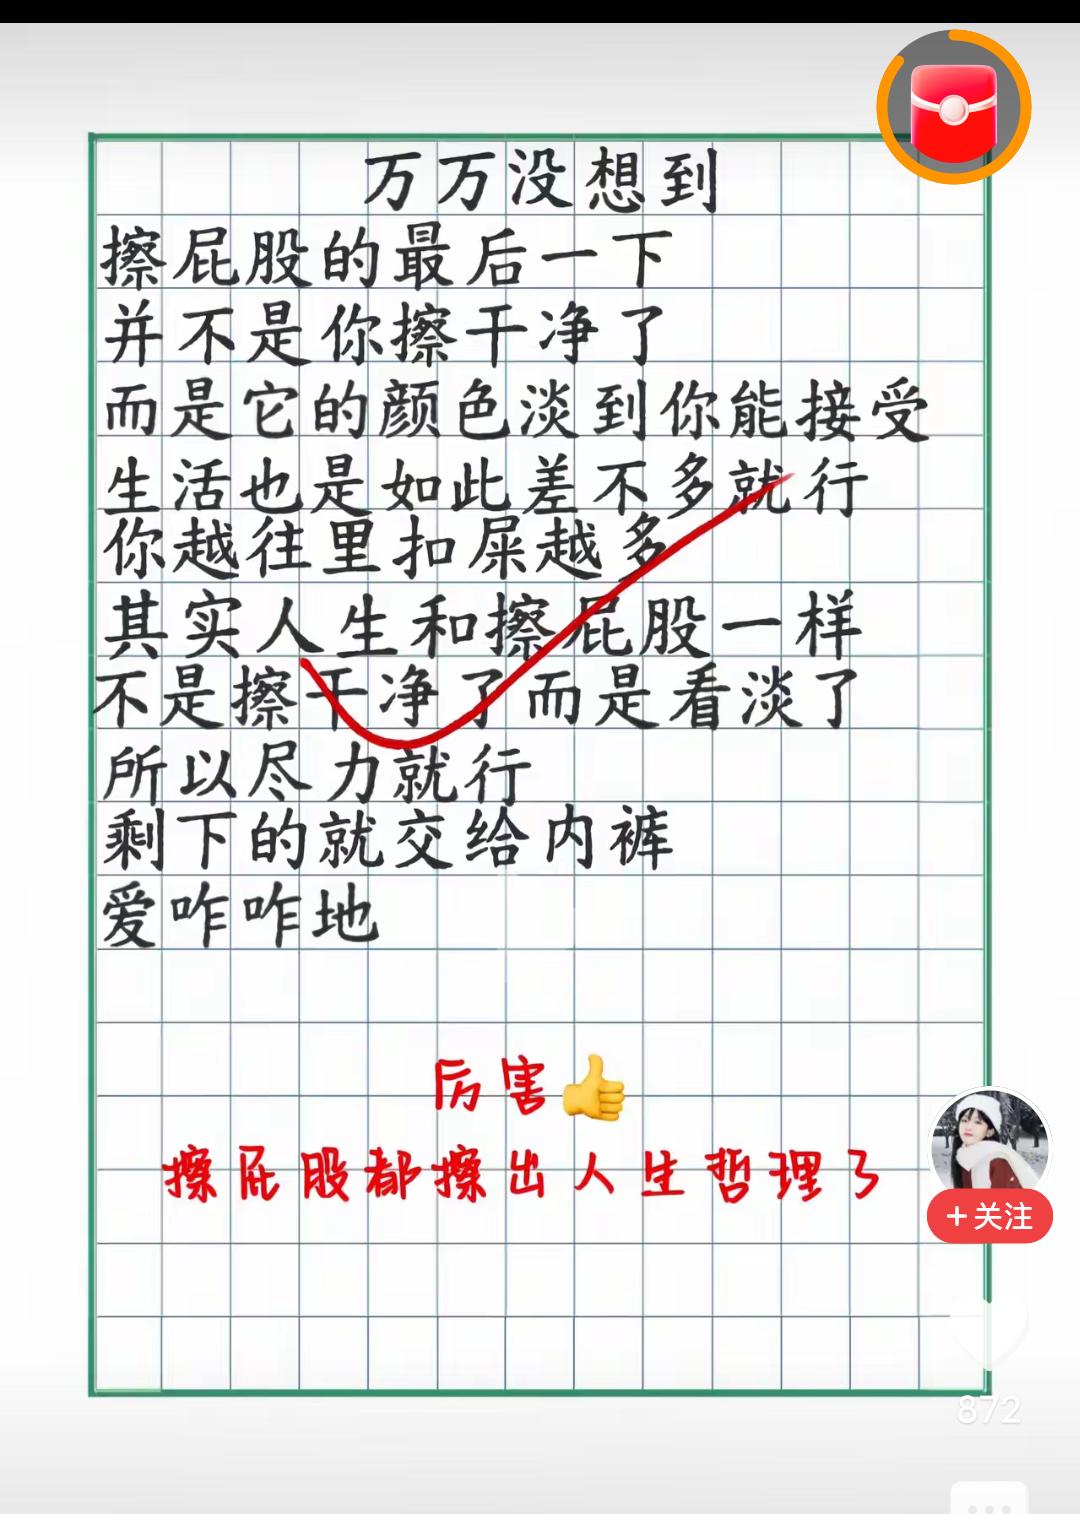 万万没想到
擦屁股的最后一下
并不是你擦干净了
而是它的颜色淡到你能接受
生活也是如此差不多就行
你越往里扣屎越多
其实人生和擦屁股一样
不是擦干净了而是看淡了
所以尽力就行
剩下的就交给内裤
爱咋咋地
厉害👍
擦屁股都擦出人生哲理了
+关注
872